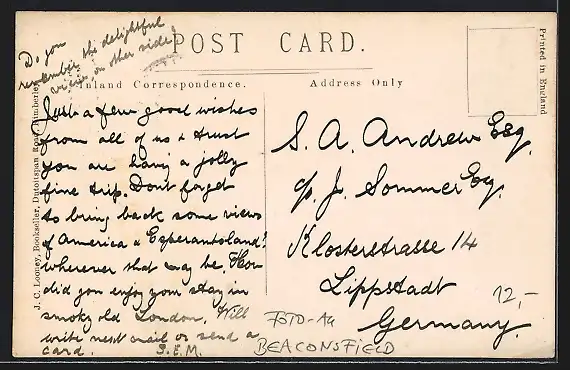 Do you
remember the delightful
view, on other side?
POST CARD.
Inland Correspondence.
Address Only
Just a few good wishes
from all of us & trust
you are having a jolly
fine trip. Dont forget
to bring back some views
of America & Esperantoland!
wherever that may be. How
did you enjoy your stay in
smoky old London. Will
write next mail or send a
card. S.E.M.
S. A. Andrew Esq.
c/o J. Sommer Esq.
Klosterstrasse 14
Lippstadt
Germany.
12,-
FOTO-AK
BEACONSFIELD
J. C. Looney, Bookseller, Dutoitspan Road, Kimberley
Printed in England